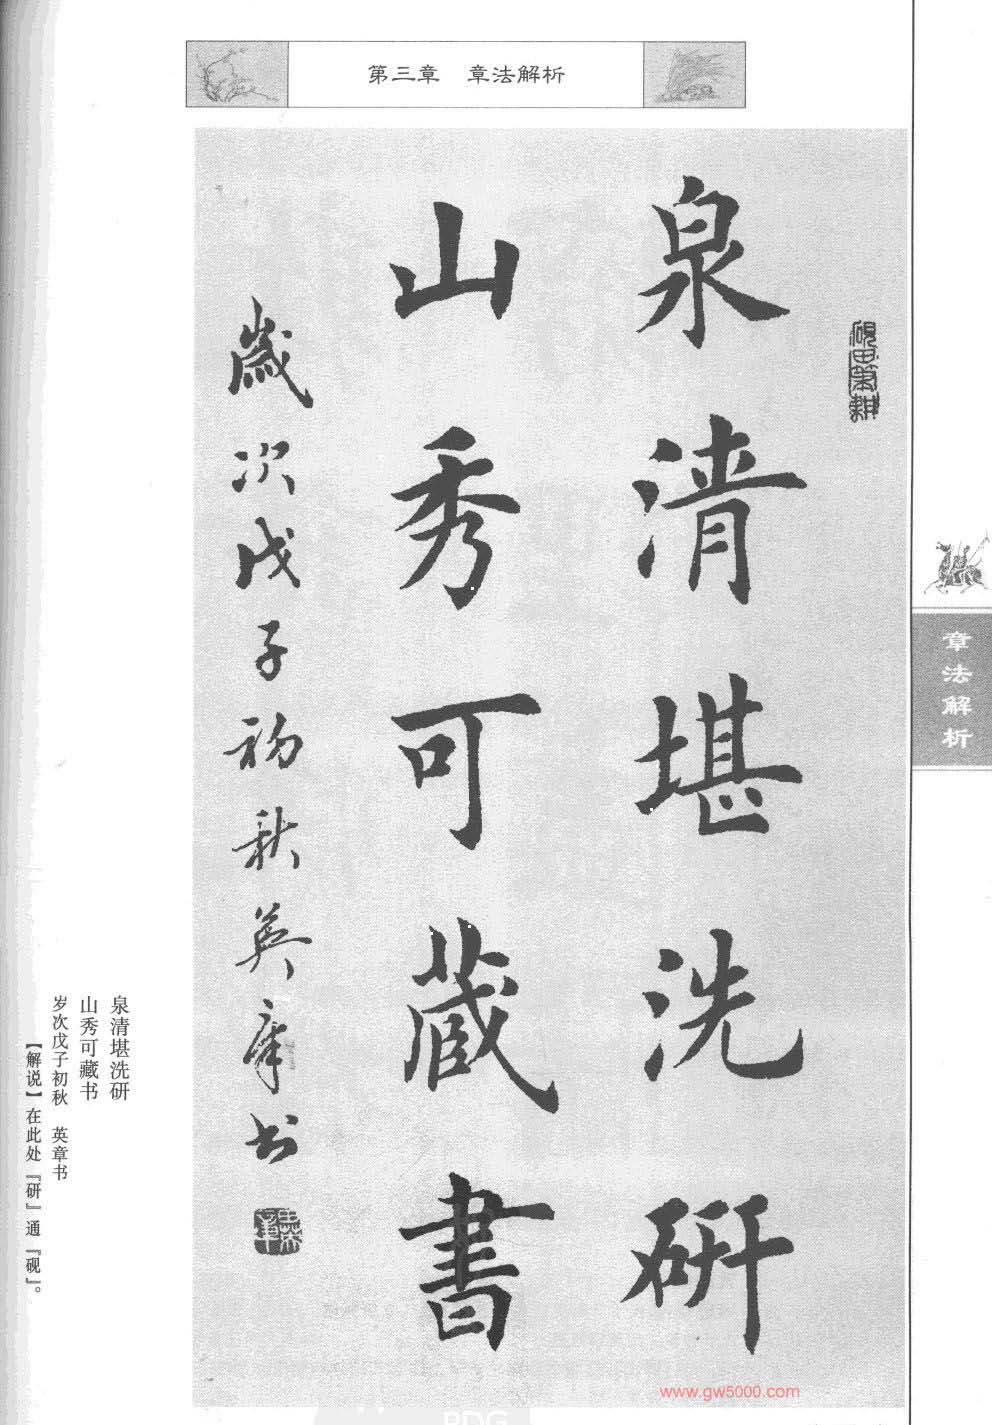 第三章　章法解析
泉清堪洗研
山秀可藏書
歲次戊子初秋英章书
砚田笔耕
章法解析
泉清堪洗研
山秀可藏书
岁次戊子初秋　英章书
【解说】在此处『研』通『砚』。
www.gw5000.com
PDG